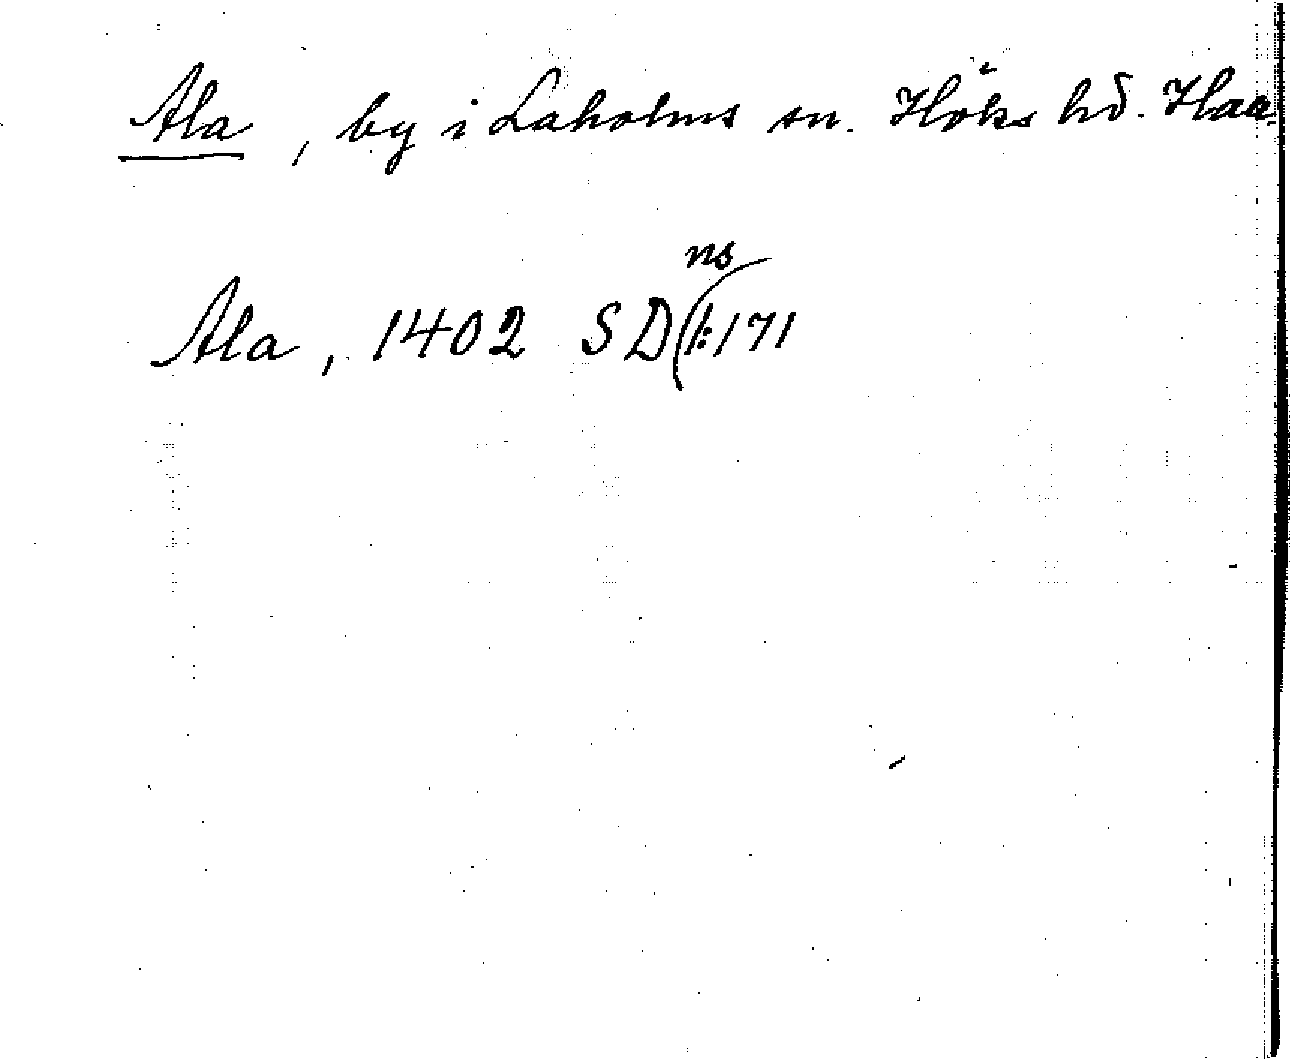 Ala, by i Laholms sn. Höks hd. Hall.
Ala, 1402 SD ns 1:171